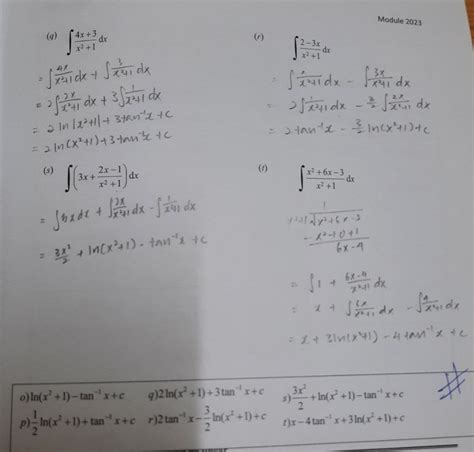 Module 2023
(q) ∫ (4x+3)/(x²+1) dx
= ∫ 4x/(x²+1) dx + ∫ 3/(x²+1) dx
= 2∫ 2x/(x²+1) dx + 3∫ 1/(x²+1) dx
= 2 ln|x²+1| + 3tan⁻¹x + c
= 2 ln(x²+1) + 3 tan⁻¹x + c
(r) ∫ (2−3x)/(x²+1) dx
= ∫ 2/(x²+1) dx − ∫ 3x/(x²+1) dx
= 2∫ 1/(x²+1) dx − 3/2 ∫ 2x/(x²+1) dx
= 2tan⁻¹x − 3/2 ln(x²+1) + c
(s) ∫ (3x + (2x−1)/(x²+1)) dx
= ∫ 3x dx + ∫ 2x/(x²+1) dx − ∫ 1/(x²+1) dx
= 3x²/2 + ln(x²+1) − tan⁻¹x + c
(t) ∫ (x²+6x−3)/(x²+1) dx
1
x²+1 √x²+6x−3
− x²+0+1
6x−4
= ∫ 1 + (6x−4)/(x²+1) dx
= x + ∫ 6x/(x²+1) dx − ∫ 4/(x²+1) dx
= x + 3ln(x²+1) − 4tan⁻¹x + c
o) ln(x²+1) − tan⁻¹ x + c q) 2 ln(x²+1) + 3 tan⁻¹ x + c s) 3x²/2 + ln(x²+1) − tan⁻¹ x + c
p) 1/2 ln(x²+1) + tan⁻¹ x + c r) 2 tan⁻¹ x − 3/2 ln(x²+1) + c t) x − 4 tan⁻¹ x + 3 ln(x²+1) + c